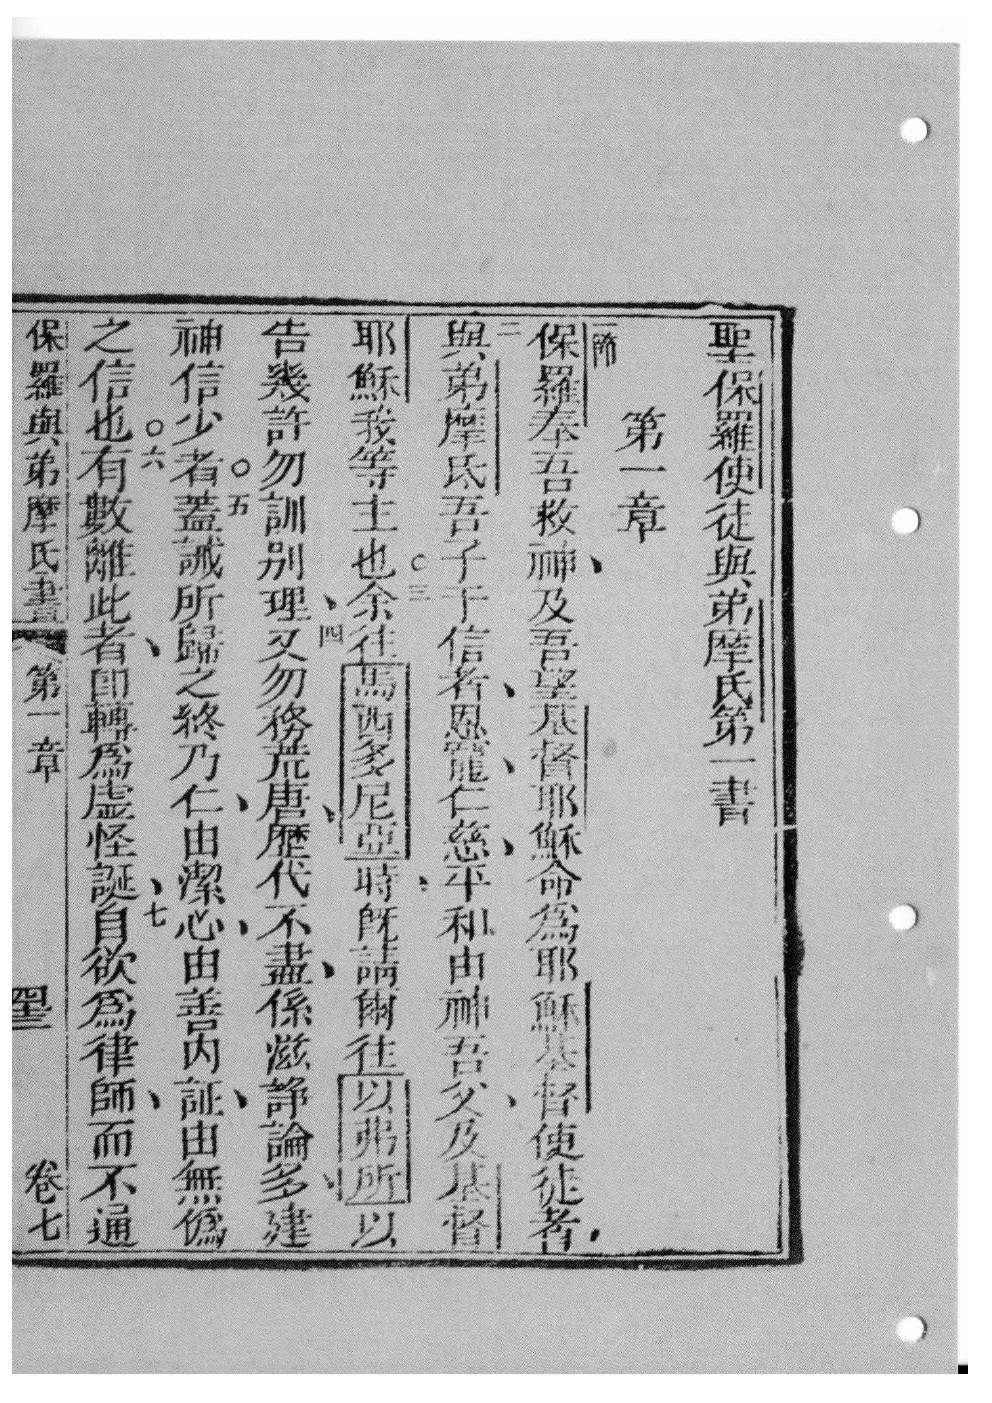 聖保羅使徒與弟摩氏第一書
第一章
一節
保羅奉吾救神及吾望基督耶穌命為耶穌基督使徒者
二
與弟摩氐吾子于信者恩寵仁慈平和由神吾父及基督
三
耶穌我等主也余往馬西多尼亞時既請爾往以弗所以
四
告幾許勿訓別理又勿務荒唐歷代不盡係滋諍論多建
五
神信少者蓋誡所歸之終乃仁由潔心由善內証由無偽
六 七
之信也有數離此者即轉為虛怪誕自欲為律師而不通
保羅與弟摩氏書 第一章 卷七